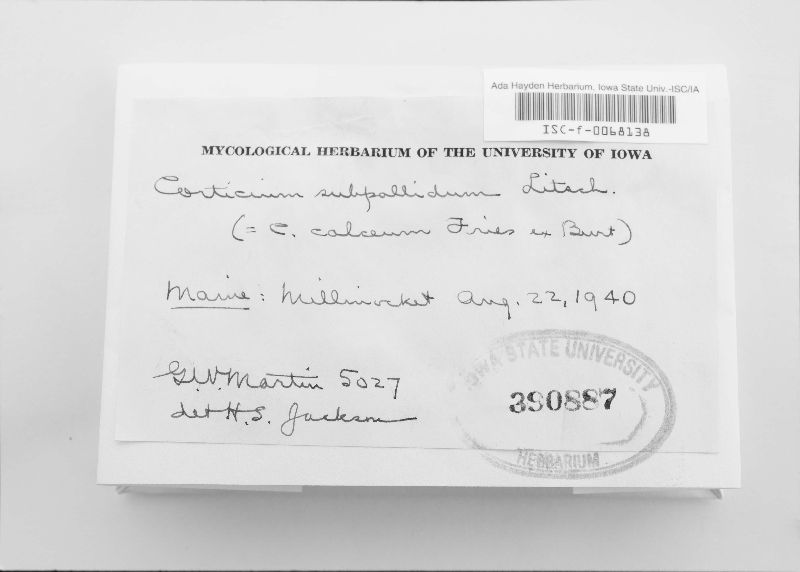 Ada Hayden Herbarium. Iowa State Univ.-ISC/IA
ISC-f-0068138
MYCOLOGICAL HERBARIUM OF THE UNIVERSITY OF IOWA
Corticium subpallidum Litsch.
(= C. calceum Fries ex Burt)
Maine: Millinocket Aug. 22, 1940
G.W. Martin 5027
det H.S. Jackson
IOWA STATE UNIVERSITY
390887
HERBARIUM